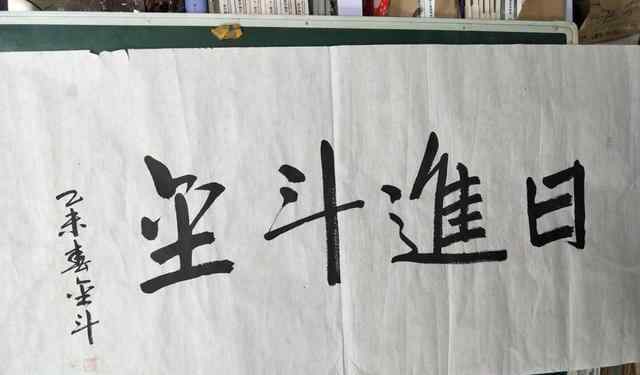 日進斗金
乙未春金斗